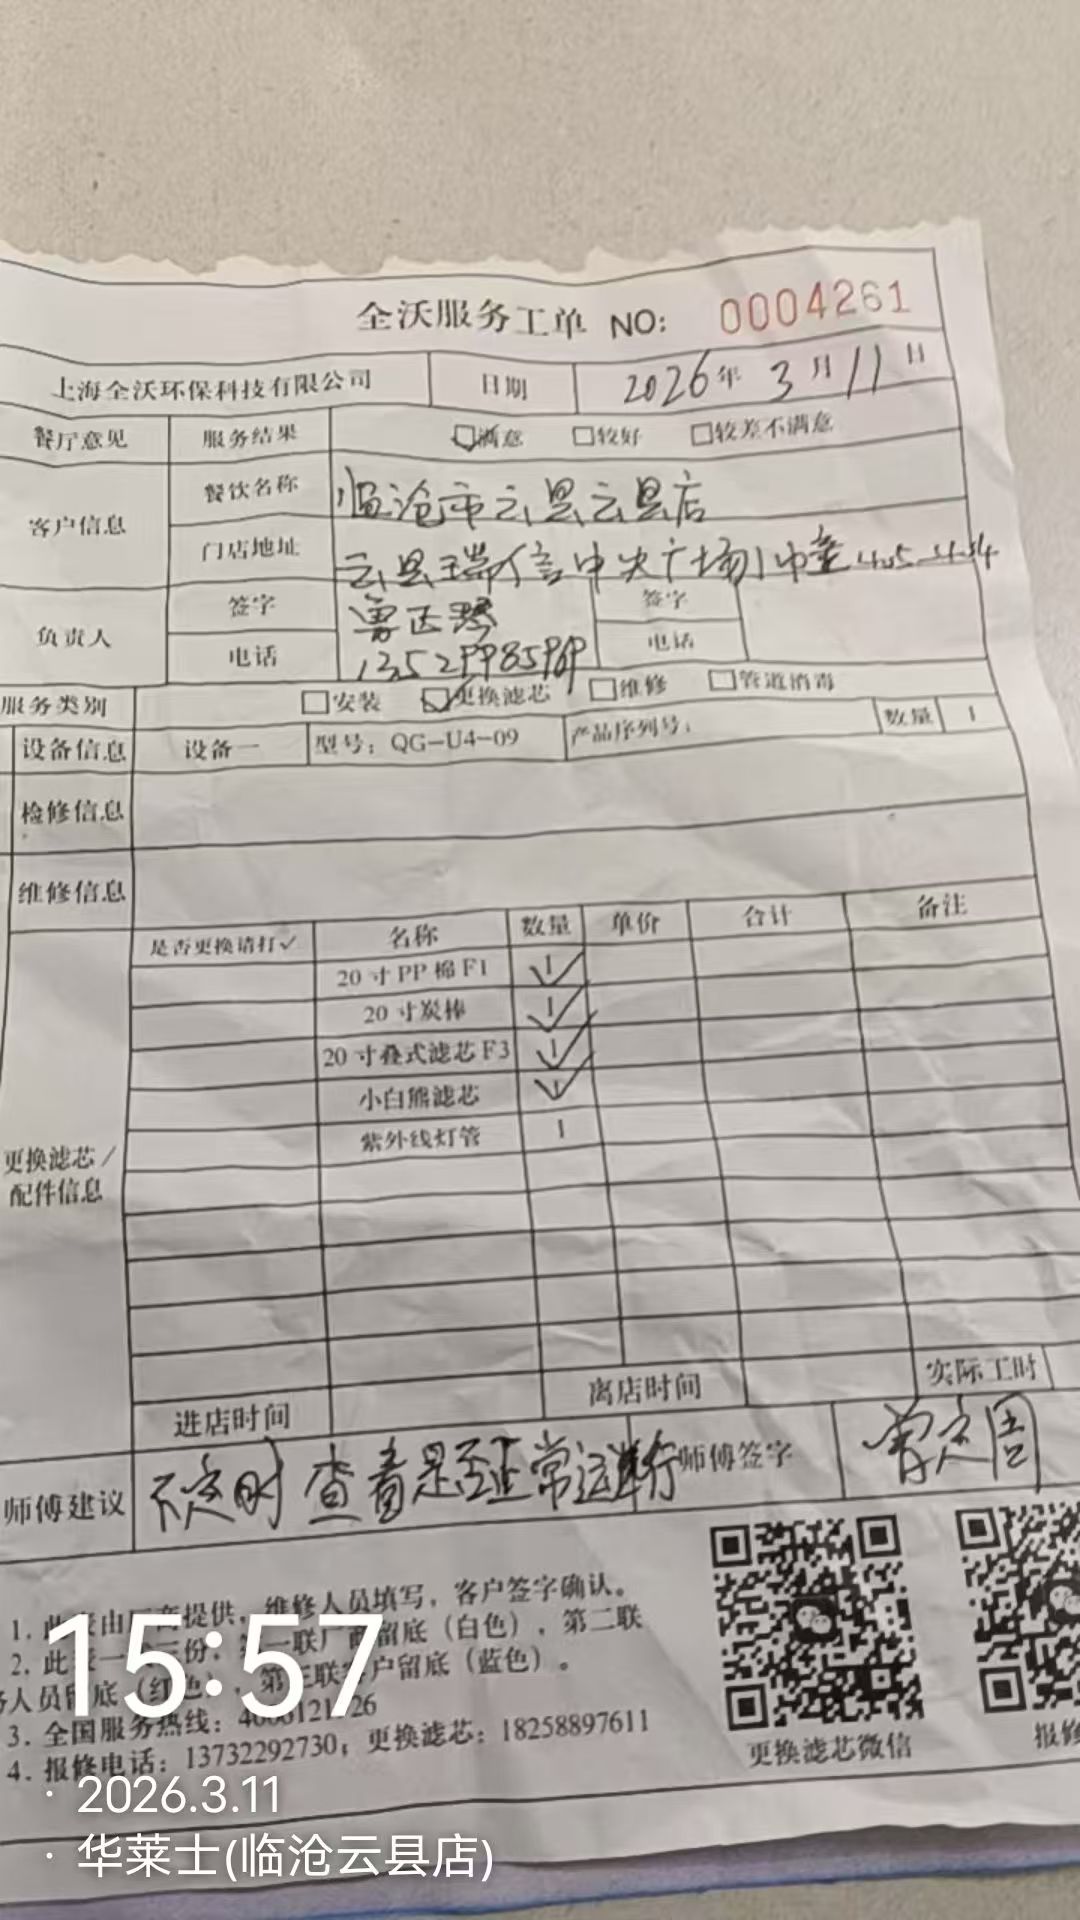 全沃服务工单 NO: 0004261
上海全沃环保科技有限公司 日期 2026年 3月11日
餐厅意见 服务结果 ☑满意 □较好 □较差不满意
客户信息 餐饮名称 临沧市云县云县店
门店地址 云县瑞信中央广场1幢
负责人 签字 签字
电话 电话
服务类别 □安装 ☑更换滤芯 □维修 □管道消毒
设备信息 设备一 型号：QG-U4-09 产品序列号： 数量 1
检修信息
维修信息
更换滤芯/
配件信息
是否更换请打✓ 名称 数量 单价 合计 备注
20寸PP棉F1 1 ✓
20寸炭棒 1 ✓
20寸叠式滤芯F3 1 ✓
小白熊滤芯 1 ✓
紫外线灯管 1
进店时间 离店时间 实际工时
师傅建议 不定时 查看是否正常运行 师傅签字
1. 此表由厂商提供，维修人员填写，客户签字确认。
2. 此表一式三份：第一联厂商留底（白色），第二联
务人员留底（红色），第三联客户留底（蓝色）。
3. 全国服务热线：
4. 报修电话：13732292730；更换滤芯：18258897611
更换滤芯微信
报修
15:57
· 2026.3.11
· 华莱士(临沧云县店)